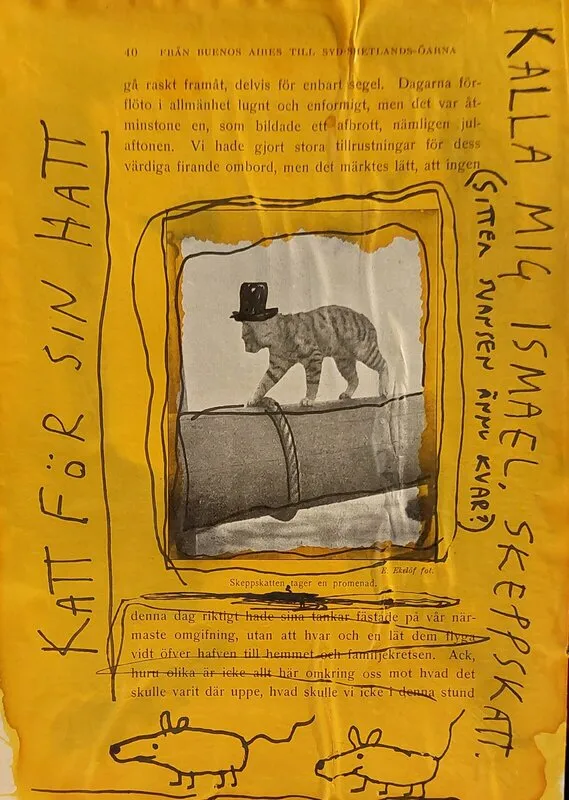 40 FRÅN BUENOS AIRES TILL SYD-SHETLANDS-ÖARNA
gå raskt framåt, delvis för enbart segel. Dagarna för-
flöto i allmänhet lugnt och enformigt, men det var åt-
minstone en, som bildade ett afbrott, nämligen jul-
aftonen. Vi hade gjort stora tillrustningar för dess
värdiga firande ombord, men det märktes lätt, att ingen
E. Ekelöf fot.
Skeppskatten tager en promenad.
denna dag riktigt hade sina tankar fästade på vår när-
maste omgifning, utan att hvar och en lät dem flyga
vidt öfver hafven till hemmet och familjekretsen. Ack,
huru olika är icke allt här omkring oss mot hvad det
skulle varit där uppe, hvad skulle vi icke i denna stund
KATT FÖR SIN HATT
KALLA MIG ISMAEL, SKEPPSKATT.
(SITTER SVANSEN ÄNNU KVAR?)